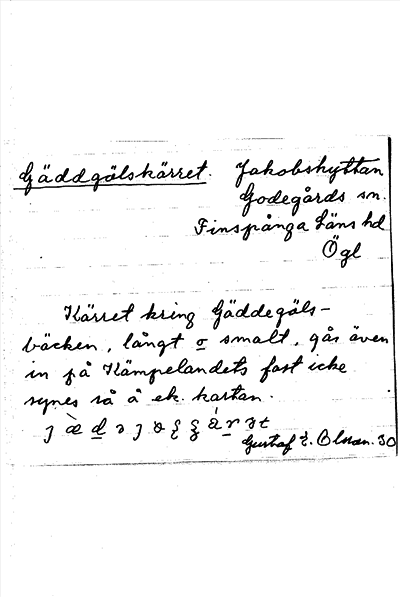 Gäddgölskärret. Jakobshyttan
Godegårds sn.
Finspånga Läns hd
Ögl
Kärret kring Gäddegöls-
bäcken, långt o smalt, går även
in på Kämpelandets fast icke
synes så å ek. kartan.
Gustaf E. Olsson. 30